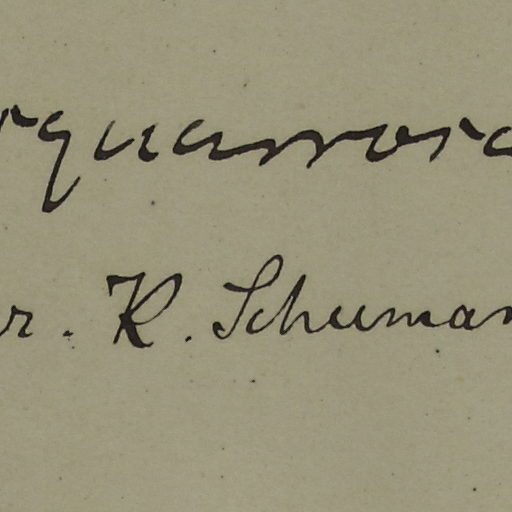 squarrosa
r. K. Schuman